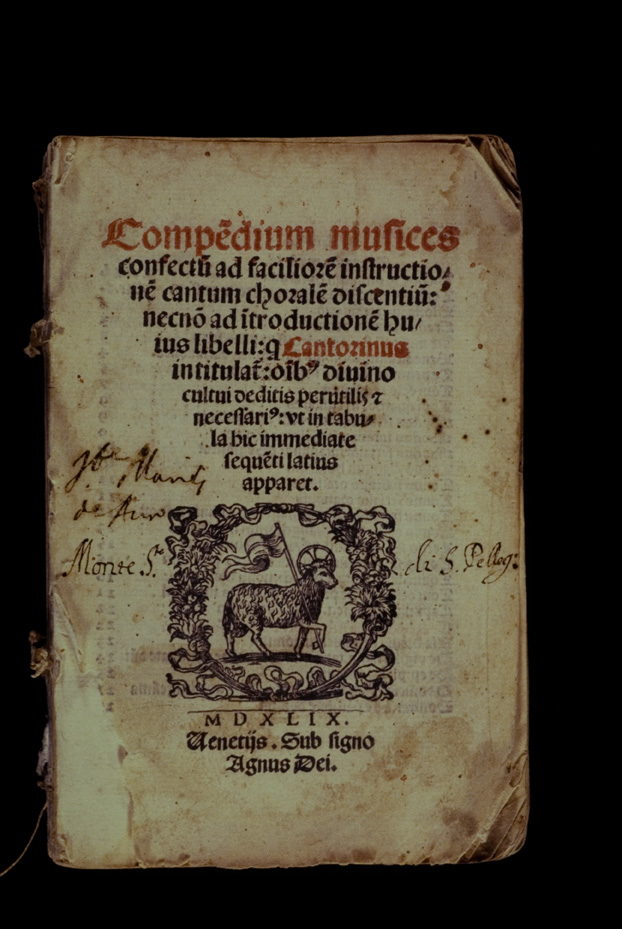 Compẽdium musices
confectũ ad faciliorẽ instructio/
nẽ cantum choralẽ discentiũ:
necnõ ad ĩtroductionẽ hu/
ius libelli:q Cantorinus
intitulat̃:oĩbꝰ diuino
cultui deditis perũtilis ⁊
necessariꝰ:vt in tabu/
la hic immediate
sequẽti latius
apparet.
de
Monte S. di S. Pelleg:
MDXLIX.
Uenetijs. Sub signo
Agnus Dei.